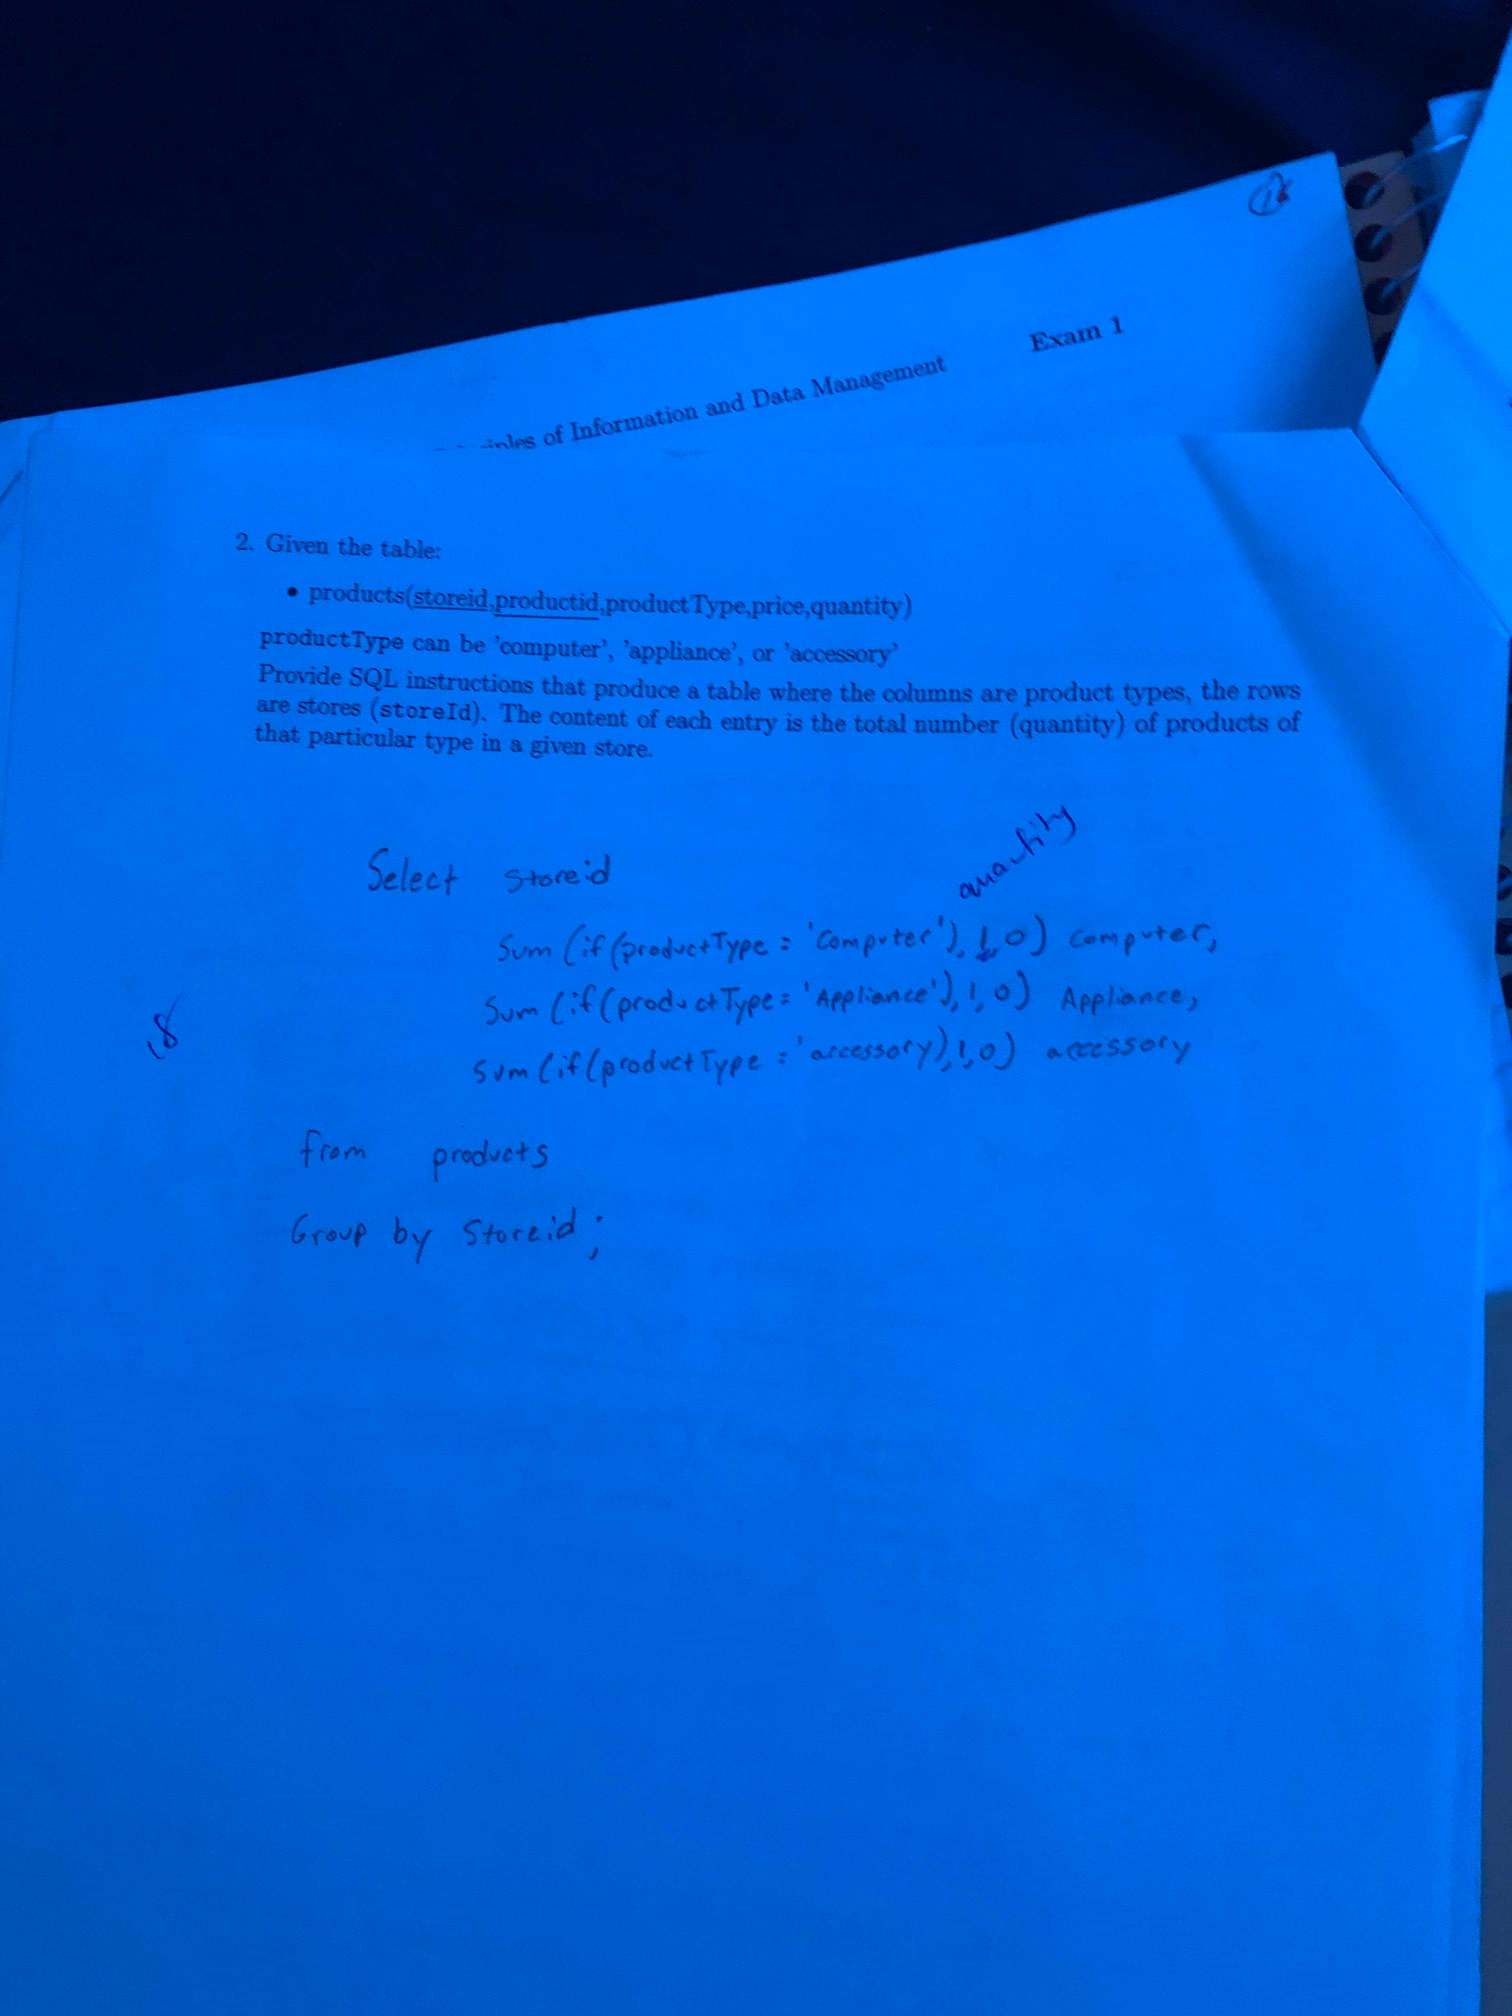 Exam 1
of Information and Data Management
2. Given the table:
• products(storeid,productid,productType,price,quantity)
productType can be 'computer', 'appliance', or 'accessory'
Provide SQL instructions that produce a table where the columns are product types, the rows
are stores (storeId). The content of each entry is the total number (quantity) of products of
that particular type in a given store.
quantity
Select storeid
Sum (if (productType = 'Computer'), 1, 0) Computer,
Sum (if (productType = 'Appliance'), 1, 0) Appliance,
18
Sum (if (productType = 'accessory), 1, 0) accessory
from products
Group by Storeid;